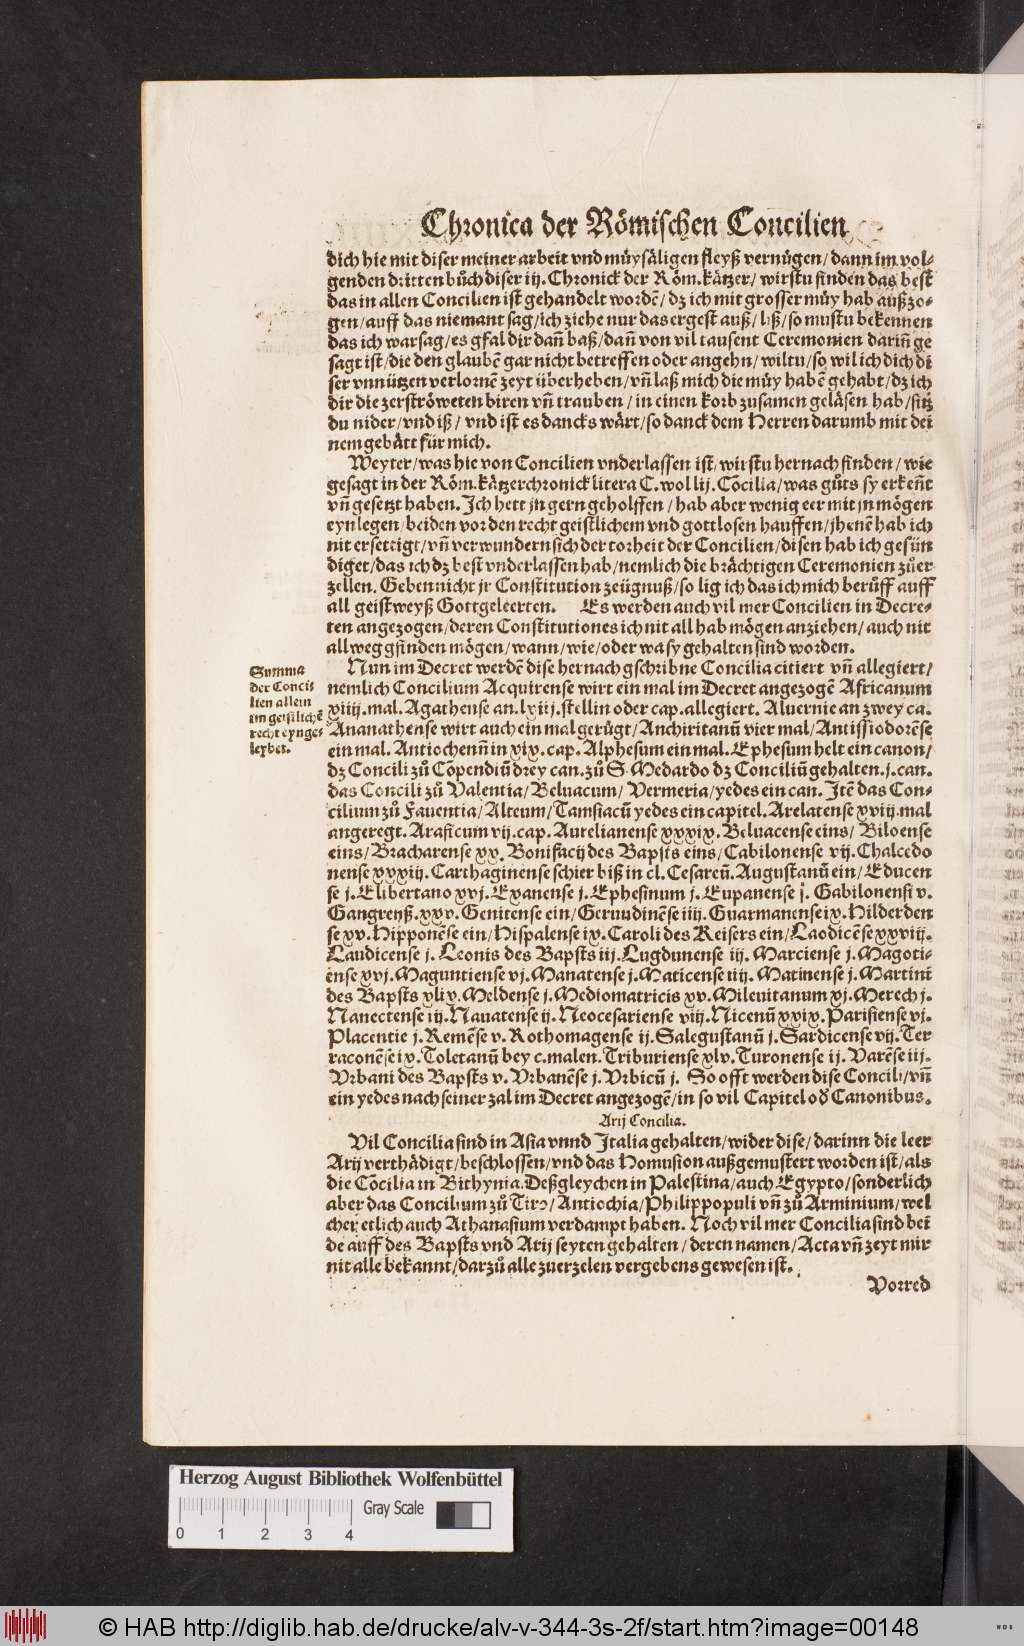 Chronica der Römischen Concilien
dich hie mit diser meiner arbeit vnd můysäligen fleyß vernügen/ dann im vol-
genden dritten bůch diser iij. Chronick der Röm. kätzer/ wirstu finden das best
das in allen Concilien ist gehandelt wordẽ/ dz ich mit grosser můy hab außzo-
gen/ auff das niemant sag/ ich ziehe nur das ergest auß/ liß/ so mustu bekennen
das ich war sag/ es gfal dir dañ baß/ dañ von vil tausent Ceremonien dariñ ge
sagt ist/ die den glaubẽ gar nicht betreffen oder angehn/ wiltu/ so wil ich dich di
ser vnnützen verlornẽ zeyt überheben/ vñ laß mich die můy habẽ gehabt/ dz ich
dir die zerströweten biren vñ trauben/ in einen korb zusamen geläsen hab/ sitz
du nider/ vnd iß/ vnd ist es dancks wärt/ so danck dem Herren darumb mit dei
nem gebätt für mich.
Weyter/ was hie von Concilien vnderlassen ist/ wirstu hernach finden/ wie
gesagt in der Röm. kätzerchronick litera C. wol lij. Cõcilia/ was gůts sy erkeñt
vñ gesetzt haben. Ich hett jn gern geholffen/ hab aber wenig eer mit jn mögen
eynlegen/ beiden vor den recht geistlichem vnd gottlosen hauffen/ jhenẽ hab ich
nit ersettigt/ vñ verwundern sich der torheit der Concilien/ disen hab ich gesün
diget/ das ich dz best vnderlassen hab/ nemlich die brächtigen Ceremonien zůer
zellen. Geben nicht jr Constitution zeügnuß/ so lig ich das ich mich berůff auff
all geistweyß Gottgeleerten. Es werden auch vil mer Concilien in Decre-
ten angezogen/ deren Constitutiones ich nit all hab mögen anziehen/ auch nit
allweg gfinden mögen/ wann/ wie/ oder wa sy gehalten sind worden.
Summa
der Conci-
lien allein
im geistlichẽ
recht eynge-
leybet.
Nun im Decret werdẽ dise hernach gschribne Concilia citiert vñ allegiert/
nemlich Concilium Acquirense wirt ein mal im Decret angezogẽ Africanum
xiiij. mal. Agathense an. lxiij. stellin oder cap. allegiert. Aluernie an zwey ca.
Ananathense wirt auch ein mal gerügt/ Anchiritanũ vier mal/ Antissiodorẽse
ein mal. Antiochenñ in xix. cap. Alphesum ein mal. Ephesum helt ein canon/
dz Concili zů Cõpendiũ drey can. zů S. Medardo dz Conciliũ gehalten. j. can.
das Concili zů Valentia/ Beluacum/ Vermeria/ yedes ein can. Itẽ das Con-
cilium zů Fauentia/ Alteum/ Tamsiacũ yedes ein capitel. Arelatense xviij. mal
angeregt. Arasicum vij. cap. Aurelianense xxxix. Beluacense eins/ Biloense
eins/ Bracharense xx. Bonifacij des Bapsts eins/ Cabilonense vij. Chalcedo
nense xxxiij. Carthaginense schier biß in cl. Cesareũ. Augustanũ ein/ Educen
se j. Elibertano xvj. Exanense j. Ephesinum j. Eupanense j. Gabilonensi v.
Gangrenß. xxv. Genitense ein/ Gerundinẽse iiij. Guarmanense ix. Hilderden
se xv. Hipponẽse ein/ Hispalense ix. Caroli des Keisers ein/ Laodicẽse xxviij.
Laudicense j. Leonis des Bapsts iij. Lugdunense iij. Marciense j. Magoti-
ense xvj. Maguntiense vj. Manatense j. Maticense iiij. Matinense j. Martini
des Bapsts xliv. Meldense j. Mediomatricis xv. Mileuitanum xj. Merech j.
Nanectense iij. Nauatense ij. Neocesariense viij. Nicenũ xxix. Parisiense vj.
Placentie j. Remẽse v. Rothomagense ij. Salegustanũ j. Sardicense vij. Ter
raconẽse ix. Toletanũ bey c. malen. Triburiense xlv. Turonense ij. Varẽse iij.
Vrbani des Bapsts v. Vrbanẽse j. Vrbicũ j. So offt werden dise Concili/ vñ
ein yedes nach seiner zal im Decret angezogẽ/ in so vil Capitel oď Canonibus.
Arij Concilia.
Vil Concilia sind in Asia vnnd Italia gehalten/ wider dise/ darinn die leer
Arij verthädigt/ beschlossen/ vnd das Homusion außgemustert worden ist/ als
die Cõcilia in Bithynia. Deßgleychen in Palestina/ auch Egypto/ sonderlich
aber das Concilium zů Tiro/ Antiochia/ Philippopuli vñ zů Arminium/ wel
cher etlich auch Athanasium verdampt haben. Noch vil mer Concilia sind bei
de auff des Bapsts vnd Arij seyten gehalten/ deren namen/ Acta vñ zeyt mir
nit alle bekannt/ darzů alle zuerzelen vergebens gewesen ist.
Vorred
Herzog August Bibliothek Wolfenbüttel
0 1 2 3 4
Gray Scale
© HAB http://diglib.hab.de/drucke/alv-v-344-3s-2f/start.htm?image=00148